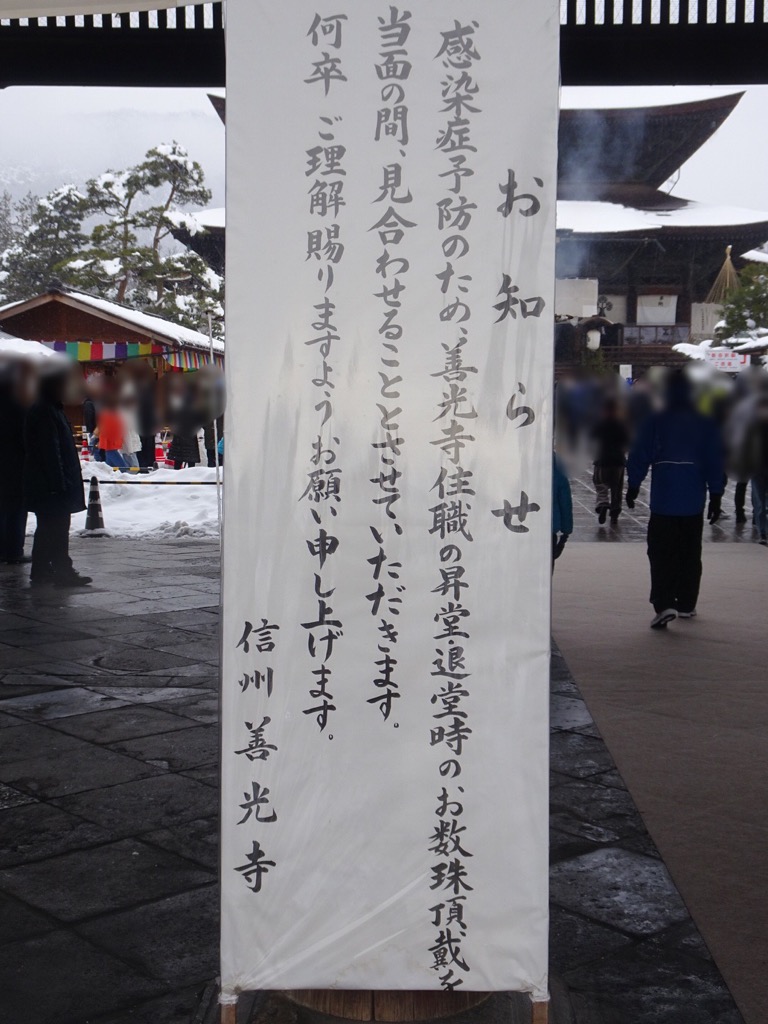 お知らせ
感染症予防のため、善光寺住職の昇堂・退堂時のお数珠頂戴を
当面の間、見合わせることとさせていただきます。
何卒 ご理解賜りますようお願い申し上げます。
信州善光寺